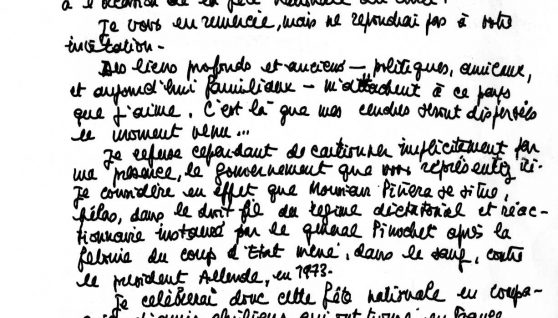 à l'occasion de la fête nationale du Chili.
Je vous en remercie, mais ne répondrai pas à votre
invitation.
Des liens profonds et anciens — politiques, amicaux,
et aujourd'hui familiaux — m'attachent à ce pays
que j'aime. C'est là que mes cendres seront dispersées
le moment venu...
Je refuse cependant de cautionner implicitement par
ma présence, le gouvernement que vous représentez ici.
Je considère en effet que Monsieur Piñera se situe,
hélas, dans le droit fil du régime dictatorial et réac-
tionnaire instauré par le général Pinochet après la
felonie du coup d'Etat mené, dans le sang, contre
le président Allende, en 1973.
Je célèbrerai donc cette fête nationale en compa-
d'amis chiliens qui ont trouvé en France